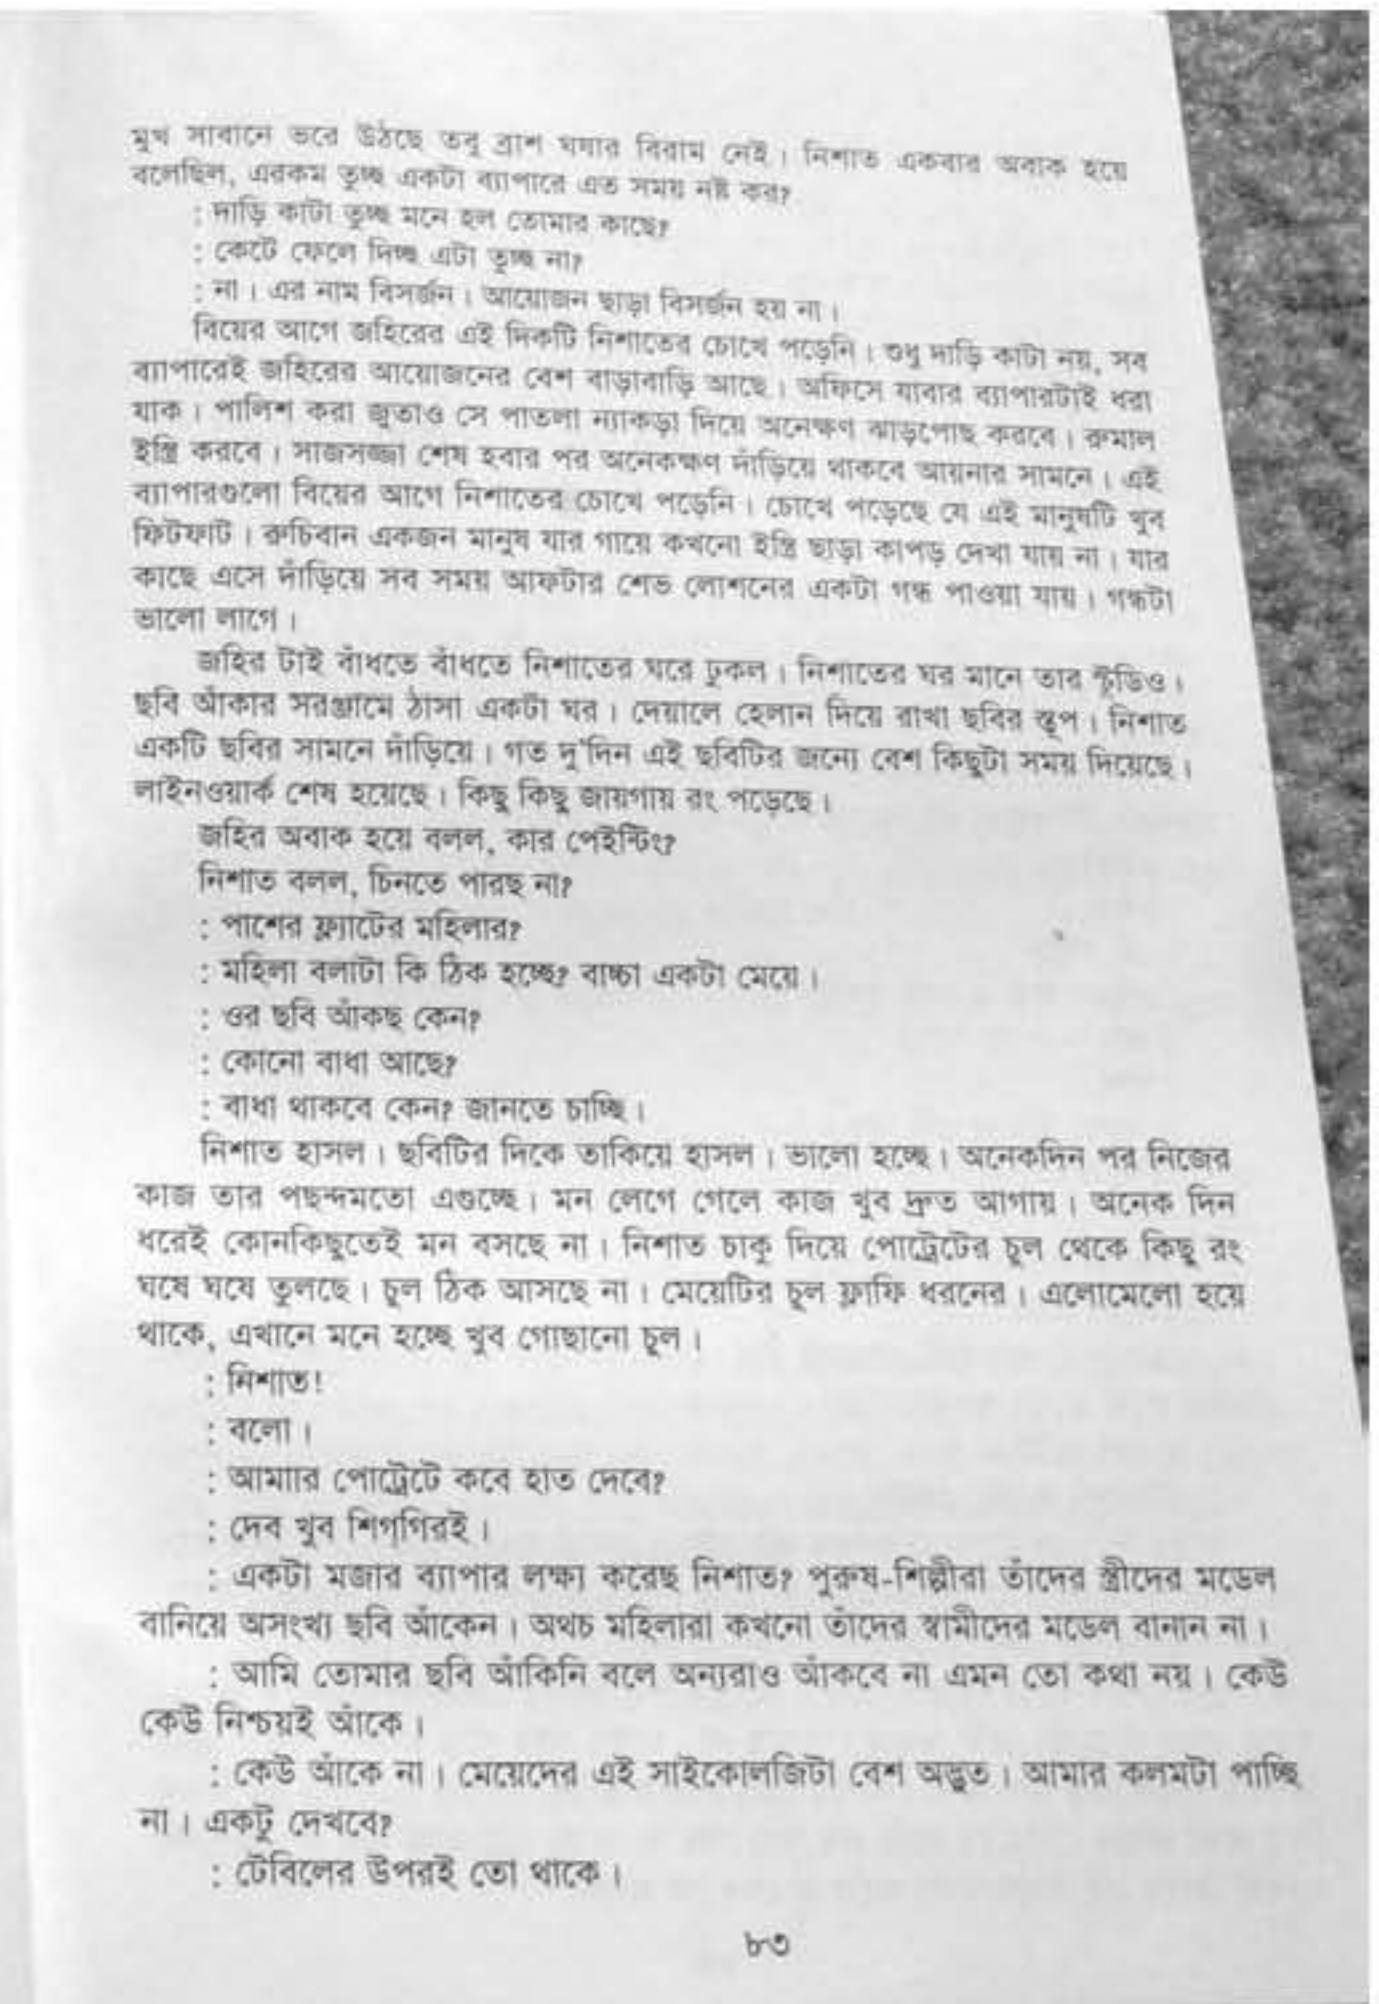 মুখ সাবানে ভরে উঠছে তবু ব্রাশ ঘষার বিরাম নেই। নিশাত একবার অবাক হয়ে
বলেছিল, এরকম তুচ্ছ একটা ব্যাপারে এত সময় নষ্ট কর?
: দাড়ি কাটা তুচ্ছ মনে হল তোমার কাছে?
: কেটে ফেলে দিচ্ছ এটা তুচ্ছ না?
: না। এর নাম বিসর্জন। আয়োজন ছাড়া বিসর্জন হয় না।
বিয়ের আগে জহিরের এই দিকটি নিশাতের চোখে পড়েনি। শুধু দাড়ি কাটা নয়, সব
ব্যাপারেই জহিরের আয়োজনের বেশ বাড়াবাড়ি আছে। অফিসে যাবার ব্যাপারটাই ধরা
যাক। পালিশ করা জুতাও সে পাতলা ন্যাকড়া দিয়ে অনেক্ষণ ঝাড়পোছ করবে। রুমাল
ইস্ত্রি করবে। সাজসজ্জা শেষ হবার পর অনেকক্ষণ দাঁড়িয়ে থাকবে আয়নার সামনে। এই
ব্যাপারগুলো বিয়ের আগে নিশাতের চোখে পড়েনি। চোখে পড়েছে যে এই মানুষটি খুব
ফিটফাট। রুচিবান একজন মানুষ যার গায়ে কখনো ইস্ত্রি ছাড়া কাপড় দেখা যায় না। যার
কাছে এসে দাঁড়িয়ে সব সময় আফটার শেভ লোশনের একটা গন্ধ পাওয়া যায়। গন্ধটা
ভালো লাগে।
জহির টাই বাঁধতে বাঁধতে নিশাতের ঘরে ঢুকল। নিশাতের ঘর মানে তার স্টুডিও।
ছবি আঁকার সরঞ্জামে ঠাসা একটা ঘর। দেয়ালে হেলান দিয়ে রাখা ছবির স্তূপ। নিশাত
একটি ছবির সামনে দাঁড়িয়ে। গত দু'দিন এই ছবিটির জন্যে বেশ কিছুটা সময় দিয়েছে।
লাইনওয়ার্ক শেষ হয়েছে। কিছু কিছু জায়গায় রং পড়েছে।
জহির অবাক হয়ে বলল, কার পেইন্টিং?
নিশাত বলল, চিনতে পারছ না?
: পাশের ফ্ল্যাটের মহিলার?
: মহিলা বলাটা কি ঠিক হচ্ছে? বাচ্চা একটা মেয়ে।
: ওর ছবি আঁকছ কেন?
: কোনো বাধা আছে?
: বাধা থাকবে কেন? জানতে চাচ্ছি।
নিশাত হাসল। ছবিটির দিকে তাকিয়ে হাসল। ভালো হচ্ছে। অনেকদিন পর নিজের
কাজ তার পছন্দমতো এগুচ্ছে। মন লেগে গেলে কাজ খুব দ্রুত আগায়। অনেক দিন
ধরেই কোনকিছুতেই মন বসছে না। নিশাত চাকু দিয়ে পোর্ট্রেটের চুল থেকে কিছু রং
ঘষে ঘষে তুলছে। চুল ঠিক আসছে না। মেয়েটির চুল ফ্লাফি ধরনের। এলোমেলো হয়ে
থাকে, এখানে মনে হচ্ছে খুব গোছানো চুল।
: নিশাত!
: বলো।
: আমাার পোর্ট্রেটে কবে হাত দেবে?
: দেব খুব শিগ্‌গিরই।
: একটা মজার ব্যাপার লক্ষ্য করেছ নিশাত? পুরুষ-শিল্পীরা তাঁদের স্ত্রীদের মডেল
বানিয়ে অসংখ্য ছবি আঁকেন। অথচ মহিলারা কখনো তাঁদের স্বামীদের মডেল বানান না।
: আমি তোমার ছবি আঁকিনি বলে অন্যরাও আঁকবে না এমন তো কথা নয়। কেউ
কেউ নিশ্চয়ই আঁকে।
: কেউ আঁকে না। মেয়েদের এই সাইকোলজিটা বেশ অদ্ভুত। আমার কলমটা পাচ্ছি
না। একটু দেখবে?
: টেবিলের উপরই তো থাকে।
৮৩